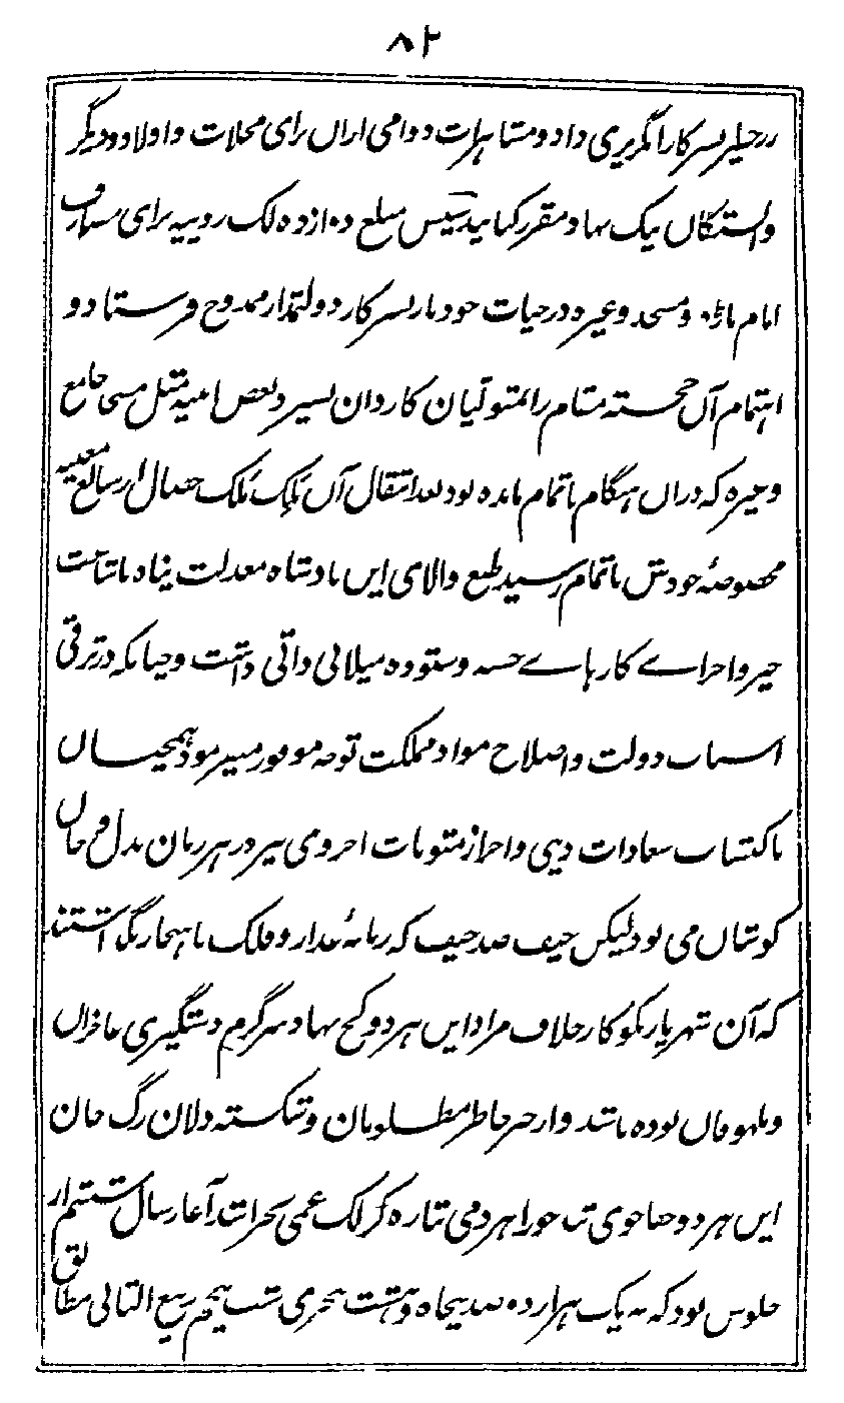 ۸۲
زرخطیر بسرکار انگریزی داد و مشاہرات دوامی ازان برای محلات و اولاد و دیگر
وابستگان نیک نہاد مقرر کنانید سپس مبلغ دوازده لک روپیہ برای مصارف
امام باڑه و مسجد و غیره در حیات خود باز بسرکار دولتمدار ممدوح فرستاد و
اہتمام آن خجستہ مقام را بمتولیان کاردان بسپرد بعض ابنیہ مثل مسجد جامع
و غیره کہ دران ہنگام ناتمام مانده بود بعد انتقال آن مَلِک مَلَک خصال از منافع معینہ
مخصوصہٴ خودش باتمام رسید طبع والای این بادشاه معدلت پناه باشاعت
خیر و اجراے کارہاے حسنہ و ستوده میلانی ذاتی داشت و چنانکہ در ترقی
اسباب دولت و اصلاح مواد مملکت توجہ موفور میفرمود ہمچنان
باکتساب سعادات دینی و احراز مثوبات اخروی نیز در ہر زمان بدل و جان
کوشان می بود لیکن حیف صد حیف کہ زمانہٴ غدار و فلک ناہنجار نگذاشتند
کہ آن شہریار نکوکار خلاف مراد این ہر دو کج نہاد سرگرم دستگیری عاجزان
و ملہوفان بوده باشد و از جبر خاطر مظلومان و شکستہ دلان رگ جان
این ہر دو جفاجوی تند خو را ہردمی بتازه کزلک غمی بخراشد آغاز سال ششم از
جلوس بود کہ سنہ یک ہزار دو صد پنجاه و ہشت ہجری شب پنجم ربیع الثانی مطابق